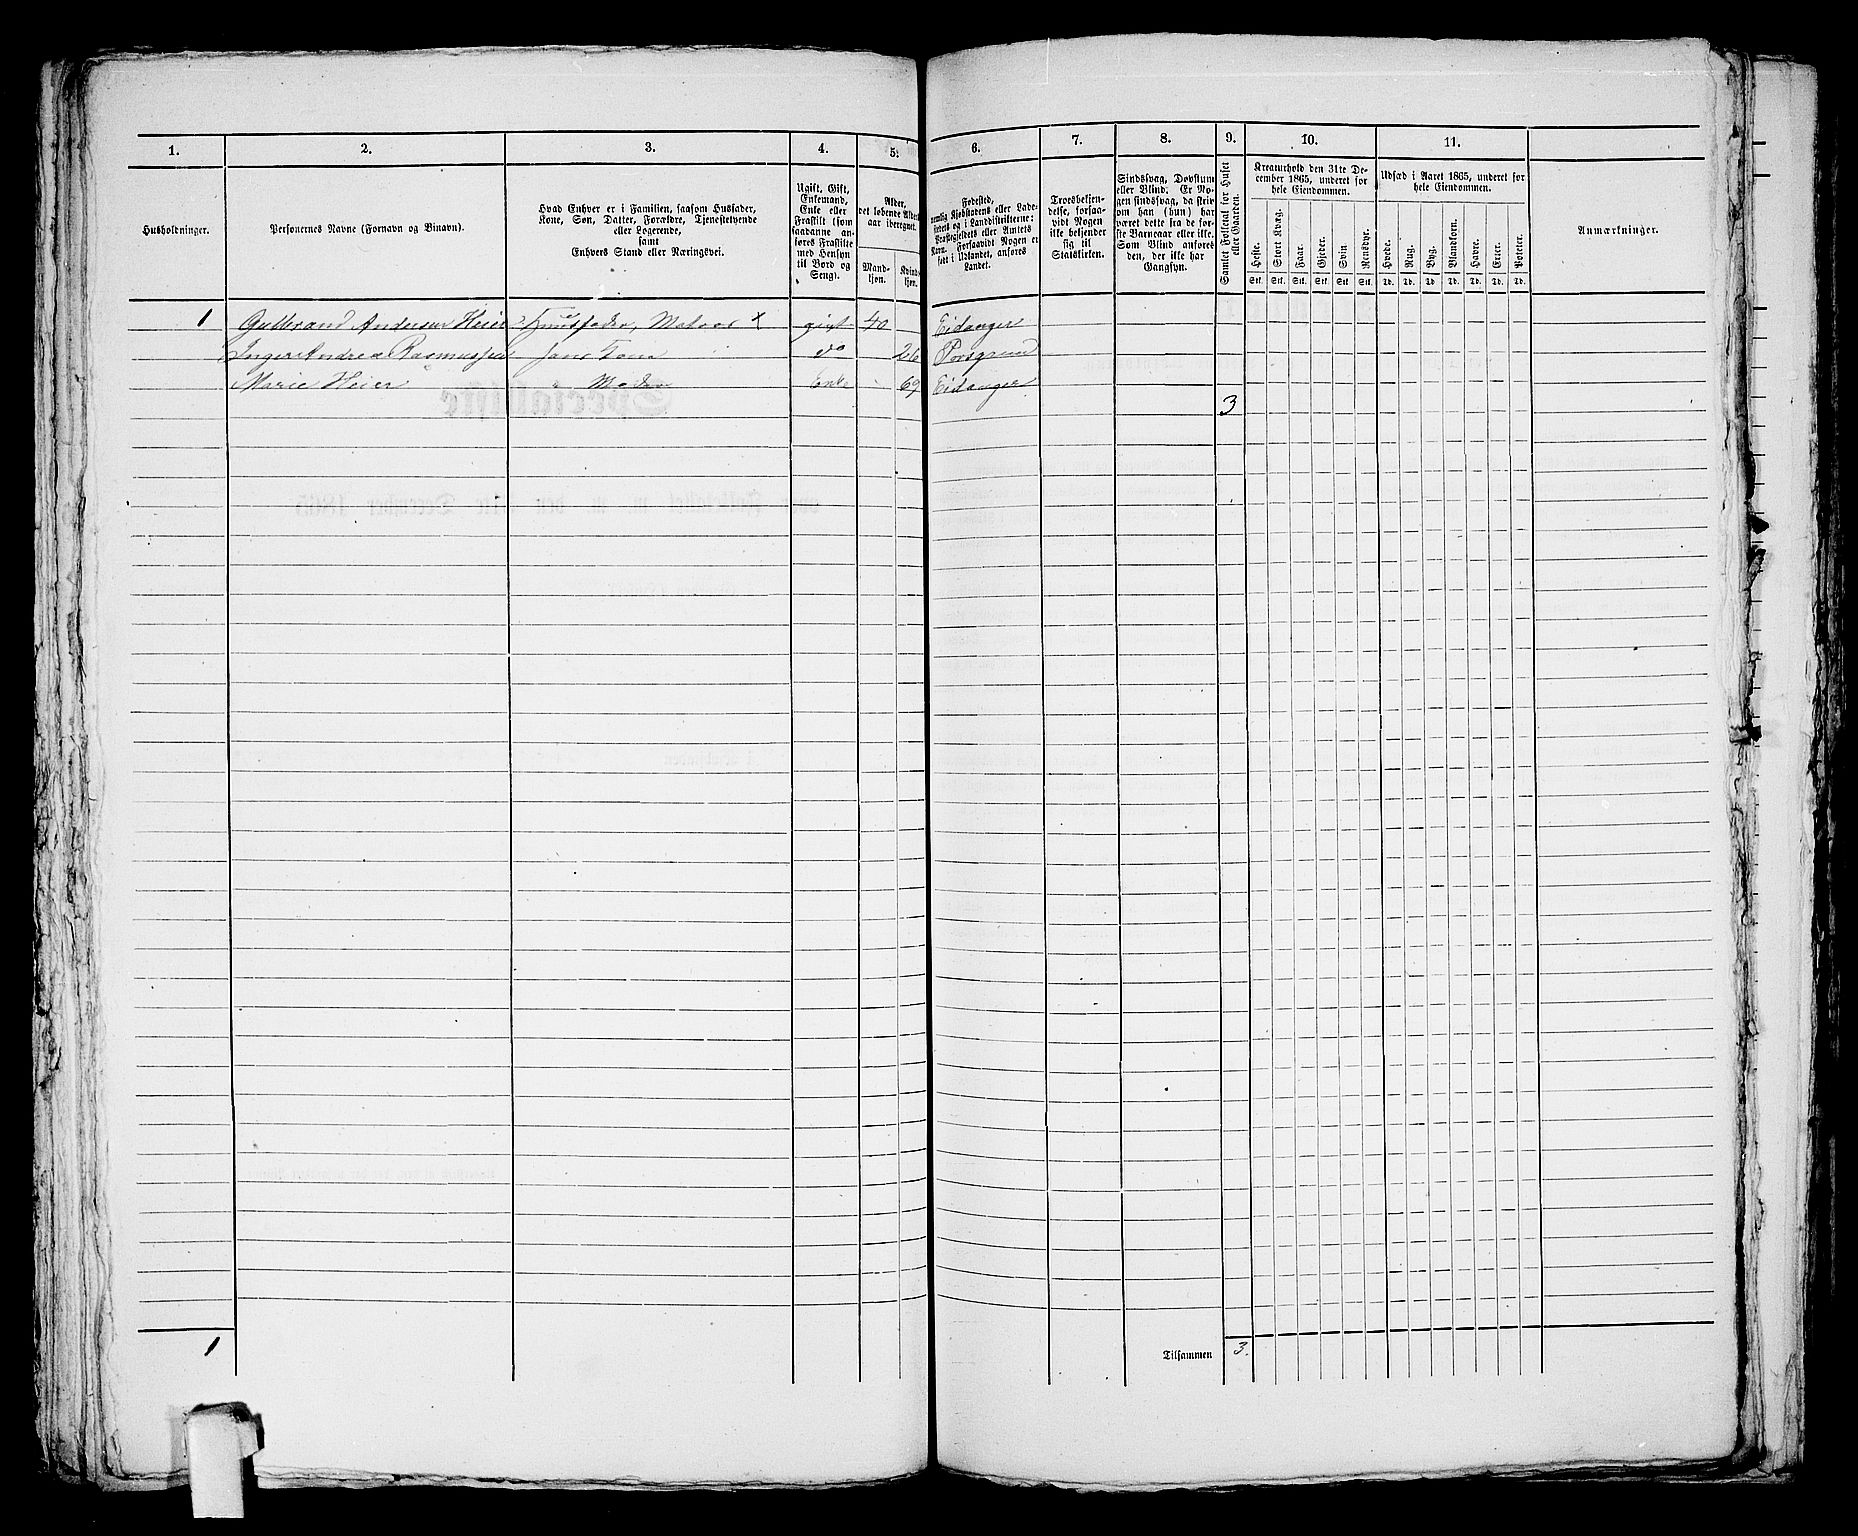 1. 2. 3. 4. 5. 6. 7. 8. 9. 10. 11.
Husholdninger.
Personernes Navne (Fornavn og Binavn).
Hvad Enhver er i Familien, saasom Husfader,
Kone, Søn, Datter, Forældre, Tjenestetyende
eller Logerende,
samt
Enhvers Stand eller Næringsvei.
Ugift, Gift,
Enkemand,
Enke eller
Fraskilt (som
saadanne an-
føres Fraskilte
med Hensyn
til Bord og
Seng).
Alder,
det løbende Alders-
aar iberegnet.
Mand-
kjøn.
Kvind-
kjøn.
Fødested,
nemlig Kjøbstadens eller Lade-
stedets og i Landdistrikterne:
Præstegjeldets eller Amtets
Navn. Forsaavidt Nogen er
født i Udlandet, anføres
Landet.
Troesbekjen-
delse, forsaa-
vidt Nogen
ikke bekjender
sig til
Statskirken.
Sindssvag, Døvstum
eller Blind. Er No-
gen sindssvag, da skriv
om han (hun) har
været dette fra de før-
ste Barneaar eller ikke.
Som Blind anføres
den, der ikke har
Gangsyn.
Samlet Folketal for Huset
eller Gaarden.
Kreaturhold den 31te De-
cember 1865, underet for
hele Eiendommen.
Heste. Stort Kvæg. Faar. Gjeder. Svin Rensdyr.
Stk. Stk. Stk. Stk. Stk Stk.
Udsæd i Aaret 1865, underet for
hele Eiendommen.
Hvede. Rug. Byg. Blandkorn. Havre. Erter. Poteter.
Td. Td. Td. Td. Td. Td. Td.
Anmærkninger.
1 Gulbrand Andersen Heier Huusfader, Matros x gift 40 Eidanger
Inger Andrea Rasmussen hans Kone do 26 Porsgrund
Marie Heier " Moder Enke 69 Eidanger
3
1 Tilsammen 3.